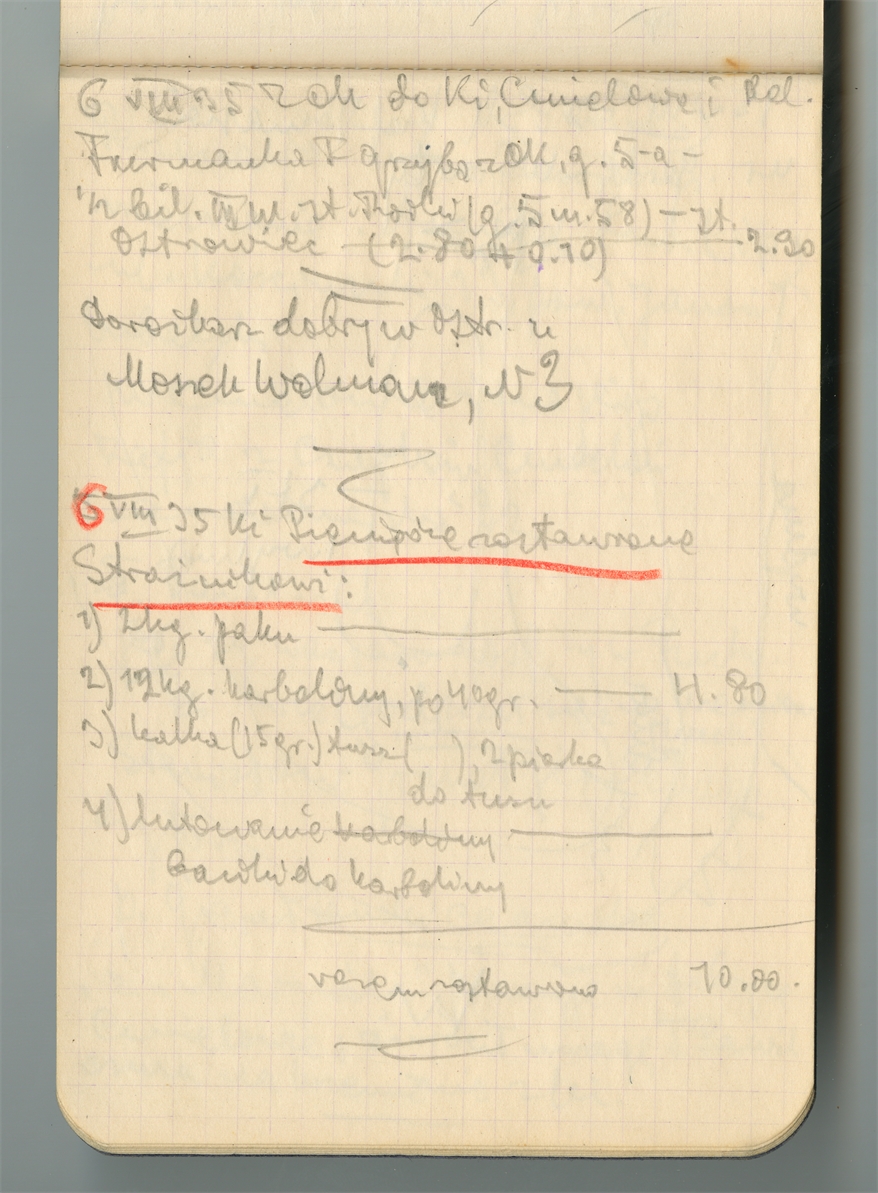 6 VIII 35 z OK do Ki, Ćmielowa i Bał.
F grzyba z OK, g. 5-a -
½ bil. III kl. st. (g. 5 m. 58) — st.
Ostrowiec — (2.80 + 0.10) 2.90
Dorożkarz dobry w Ostr. u
Moszek Wolman, N 3
6 VIII 35 Ki Pieniądze zostawione
Strażnikowi:
1) 2 kg. paku
2) 12 kg. karboliny, po 40 gr. — 4.80
3) kalka (15 gr.) tusz ( ), 2 piórka
do tuszu
4) lutowanie karboliny
bańki do karboliny
razem zostawiono 10.00.